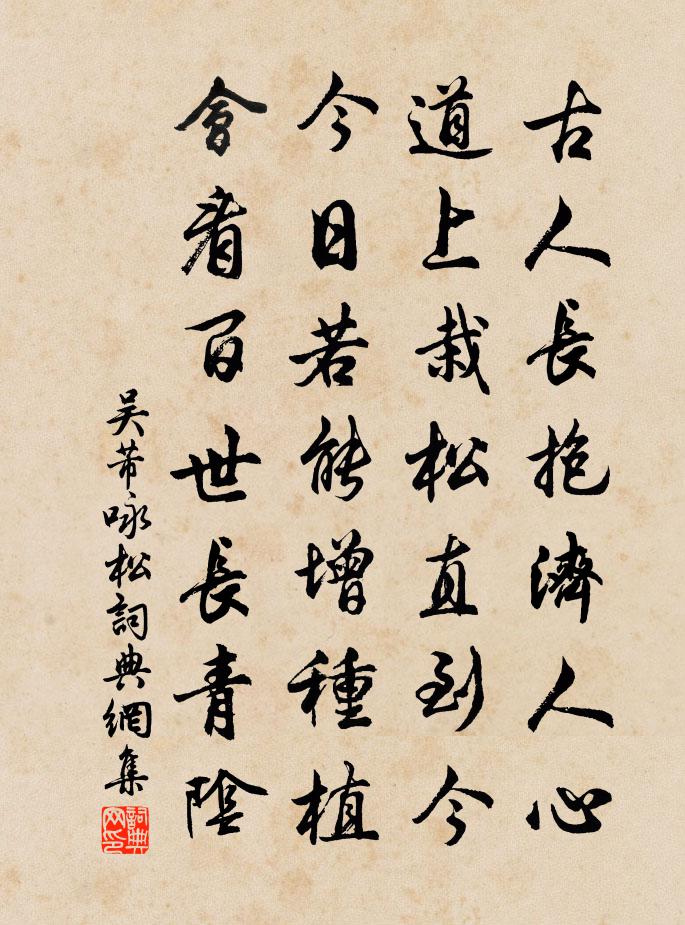 古人長抱濟人心
道上栽松直到今
今日若能增種植
會看百世長青陰
吴芾咏松詞典網集
詞典网印